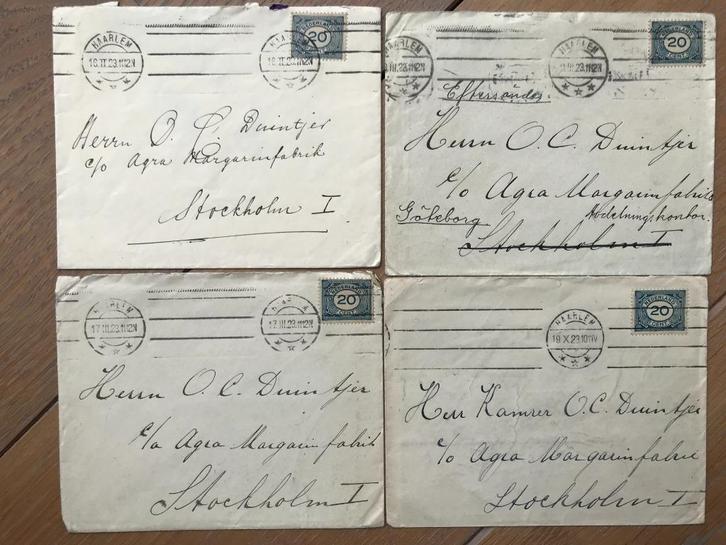 HAARLEM
16.II.23.11-12N
HAARLEM
16.II.23.11-12N
20
CENT
Herrn O. C. Duintjer
c/o Agra Margarinfabrik
Stockholm I
HAARLEM
HAARLEM
NEDERLAND
20
CENT
Eftersändes
Herrn O. C. Duintjer
c/o Agra Margarinfabrik
Göteborg Avdelningskontor.
Stockholm I
HAARLEM
17.III.23.11-12N
17.III.23.11-12N
20
CENT
Herrn O. C. Duintjer
c/o Agra Margarinfabrik
Stockholm I
HAARLEM
19.X.23.10-11V
NEDERLAND
20
CENT
Herr Kamrer O. C. Duintjer
c/o Agra Margarinfabrik
Stockholm I